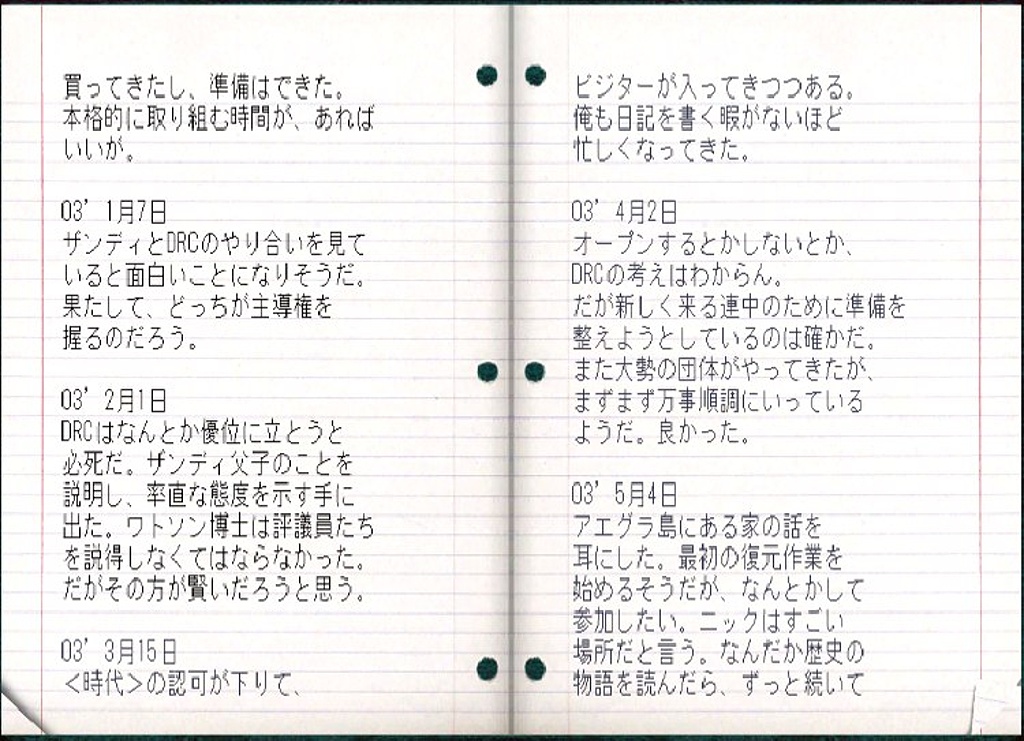 買ってきたし、準備はできた。
本格的に取り組む時間が、あれば
いいが。
03’ 1月7日
ザンディとDRCのやり合いを見て
いると面白いことになりそうだ。
果たして、どっちが主導権を
握るのだろう。
03’ 2月1日
DRCはなんとか優位に立とうと
必死だ。ザンディ父子のことを
説明し、率直な態度を示す手に
出た。ワトソン博士は評議員たち
を説得しなくてはならなかった。
だがその方が賢いだろうと思う。
03’ 3月15日
＜時代＞の認可が下りて、
ビジターが入ってきつつある。
俺も日記を書く暇がないほど
忙しくなってきた。
03’ 4月2日
オープンするとかしないとか、
DRCの考えはわからん。
だが新しく来る連中のために準備を
整えようとしているのは確かだ。
また大勢の団体がやってきたが、
まずまず万事順調にいっている
ようだ。良かった。
03’ 5月4日
アエグラ島にある家の話を
耳にした。最初の復元作業を
始めるそうだが、なんとかして
参加したい。ニックはすごい
場所だと言う。なんだか歴史の
物語を読んだら、ずっと続いて